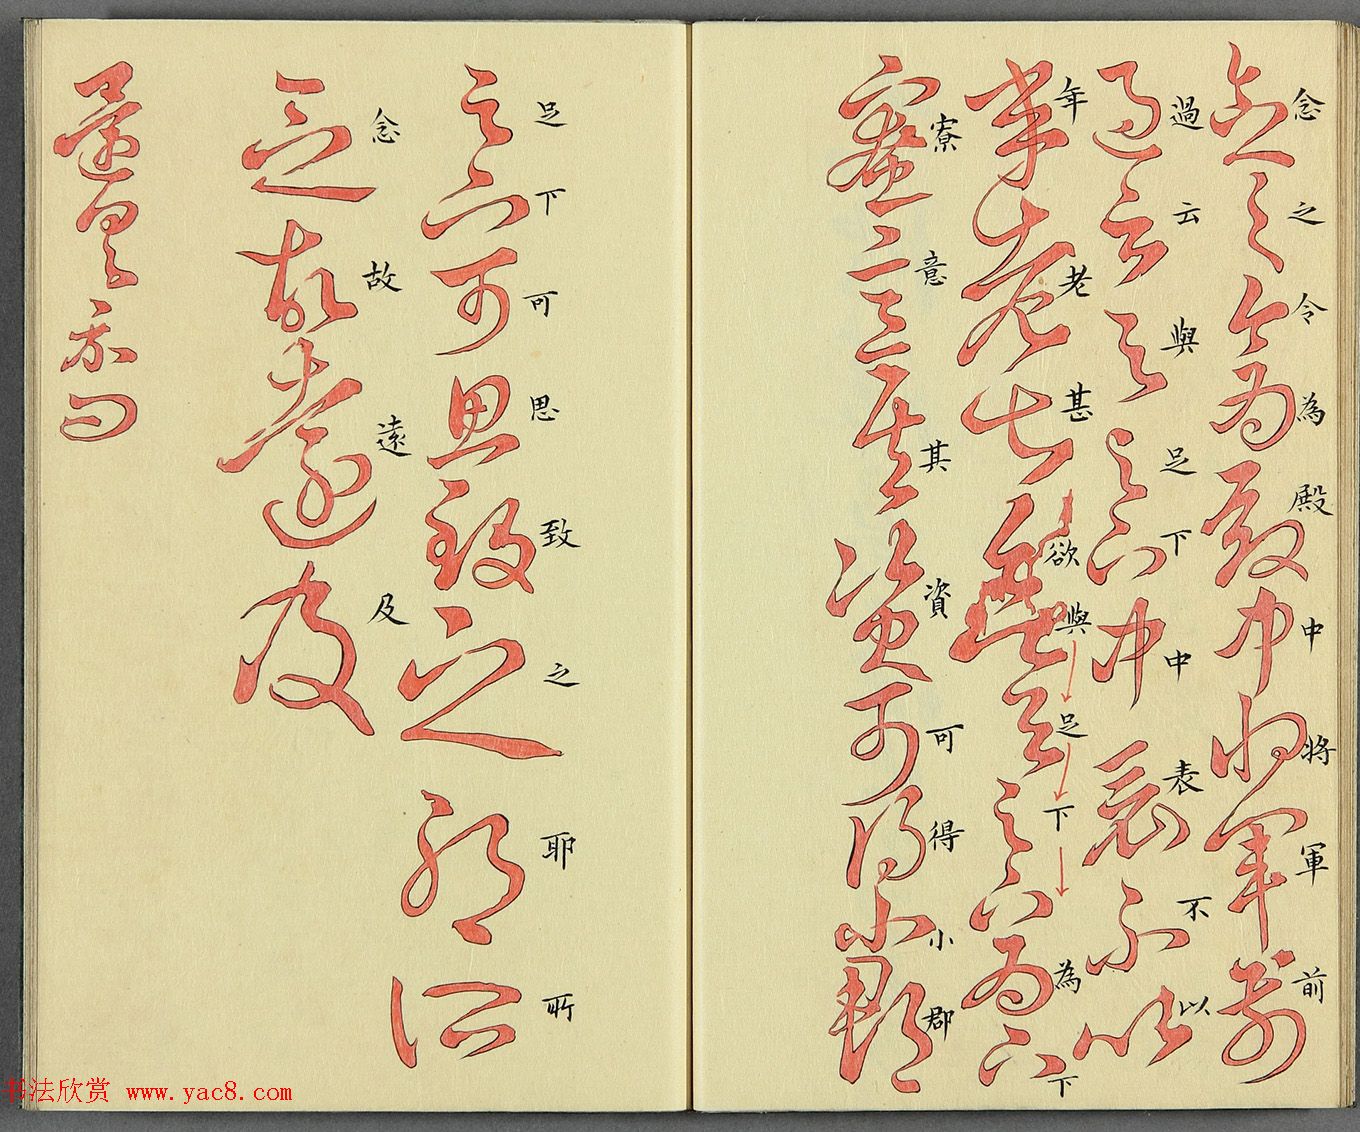 念之令為殿中將軍前
過云與足下中表不以
年老甚欲與足下為下
寮意其資可得小郡
足下可思致之耶所
念故遠及
還具示問
书法欣赏 www.yac8.com